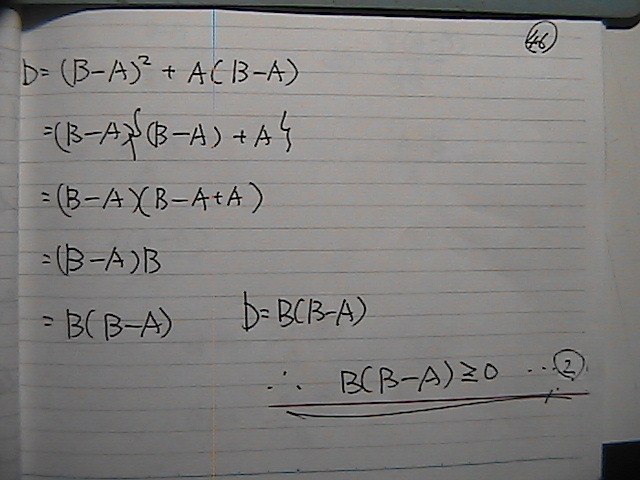 46
D=(B-A)²+A(B-A)
=(B-A){(B-A)+A}
=(B-A)(B-A+A)
=(B-A)B
=B(B-A) D=B(B-A)
∴ B(B-A)≧0 …②